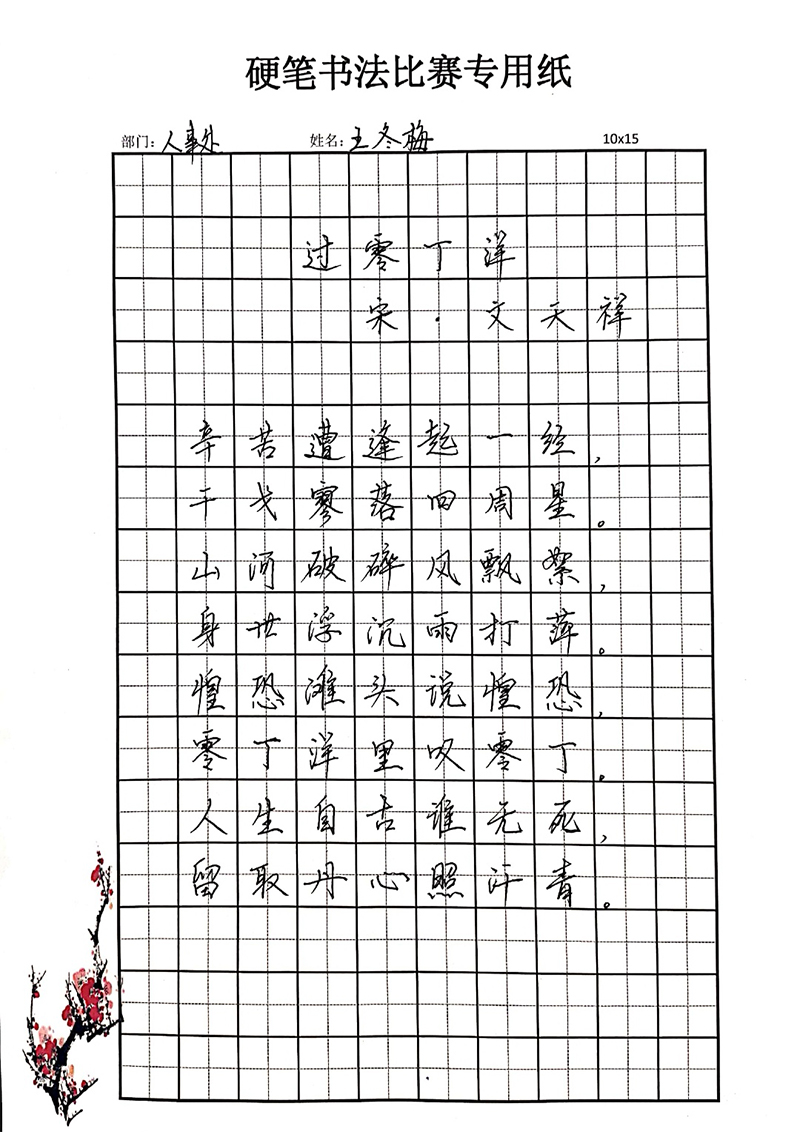 硬笔书法比赛专用纸
部门：人事处 姓名：王冬梅 10x15
过零丁洋
宋·文天祥
辛苦遭逢起一经，
干戈寥落四周星。
山河破碎风飘絮，
身世浮沉雨打萍。
惶恐滩头说惶恐，
零丁洋里叹零丁。
人生自古谁无死，
留取丹心照汗青。